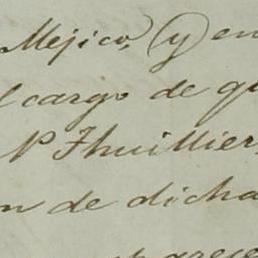 Mejico, y en
l cargo de qu
N Thuillier
n de dicha